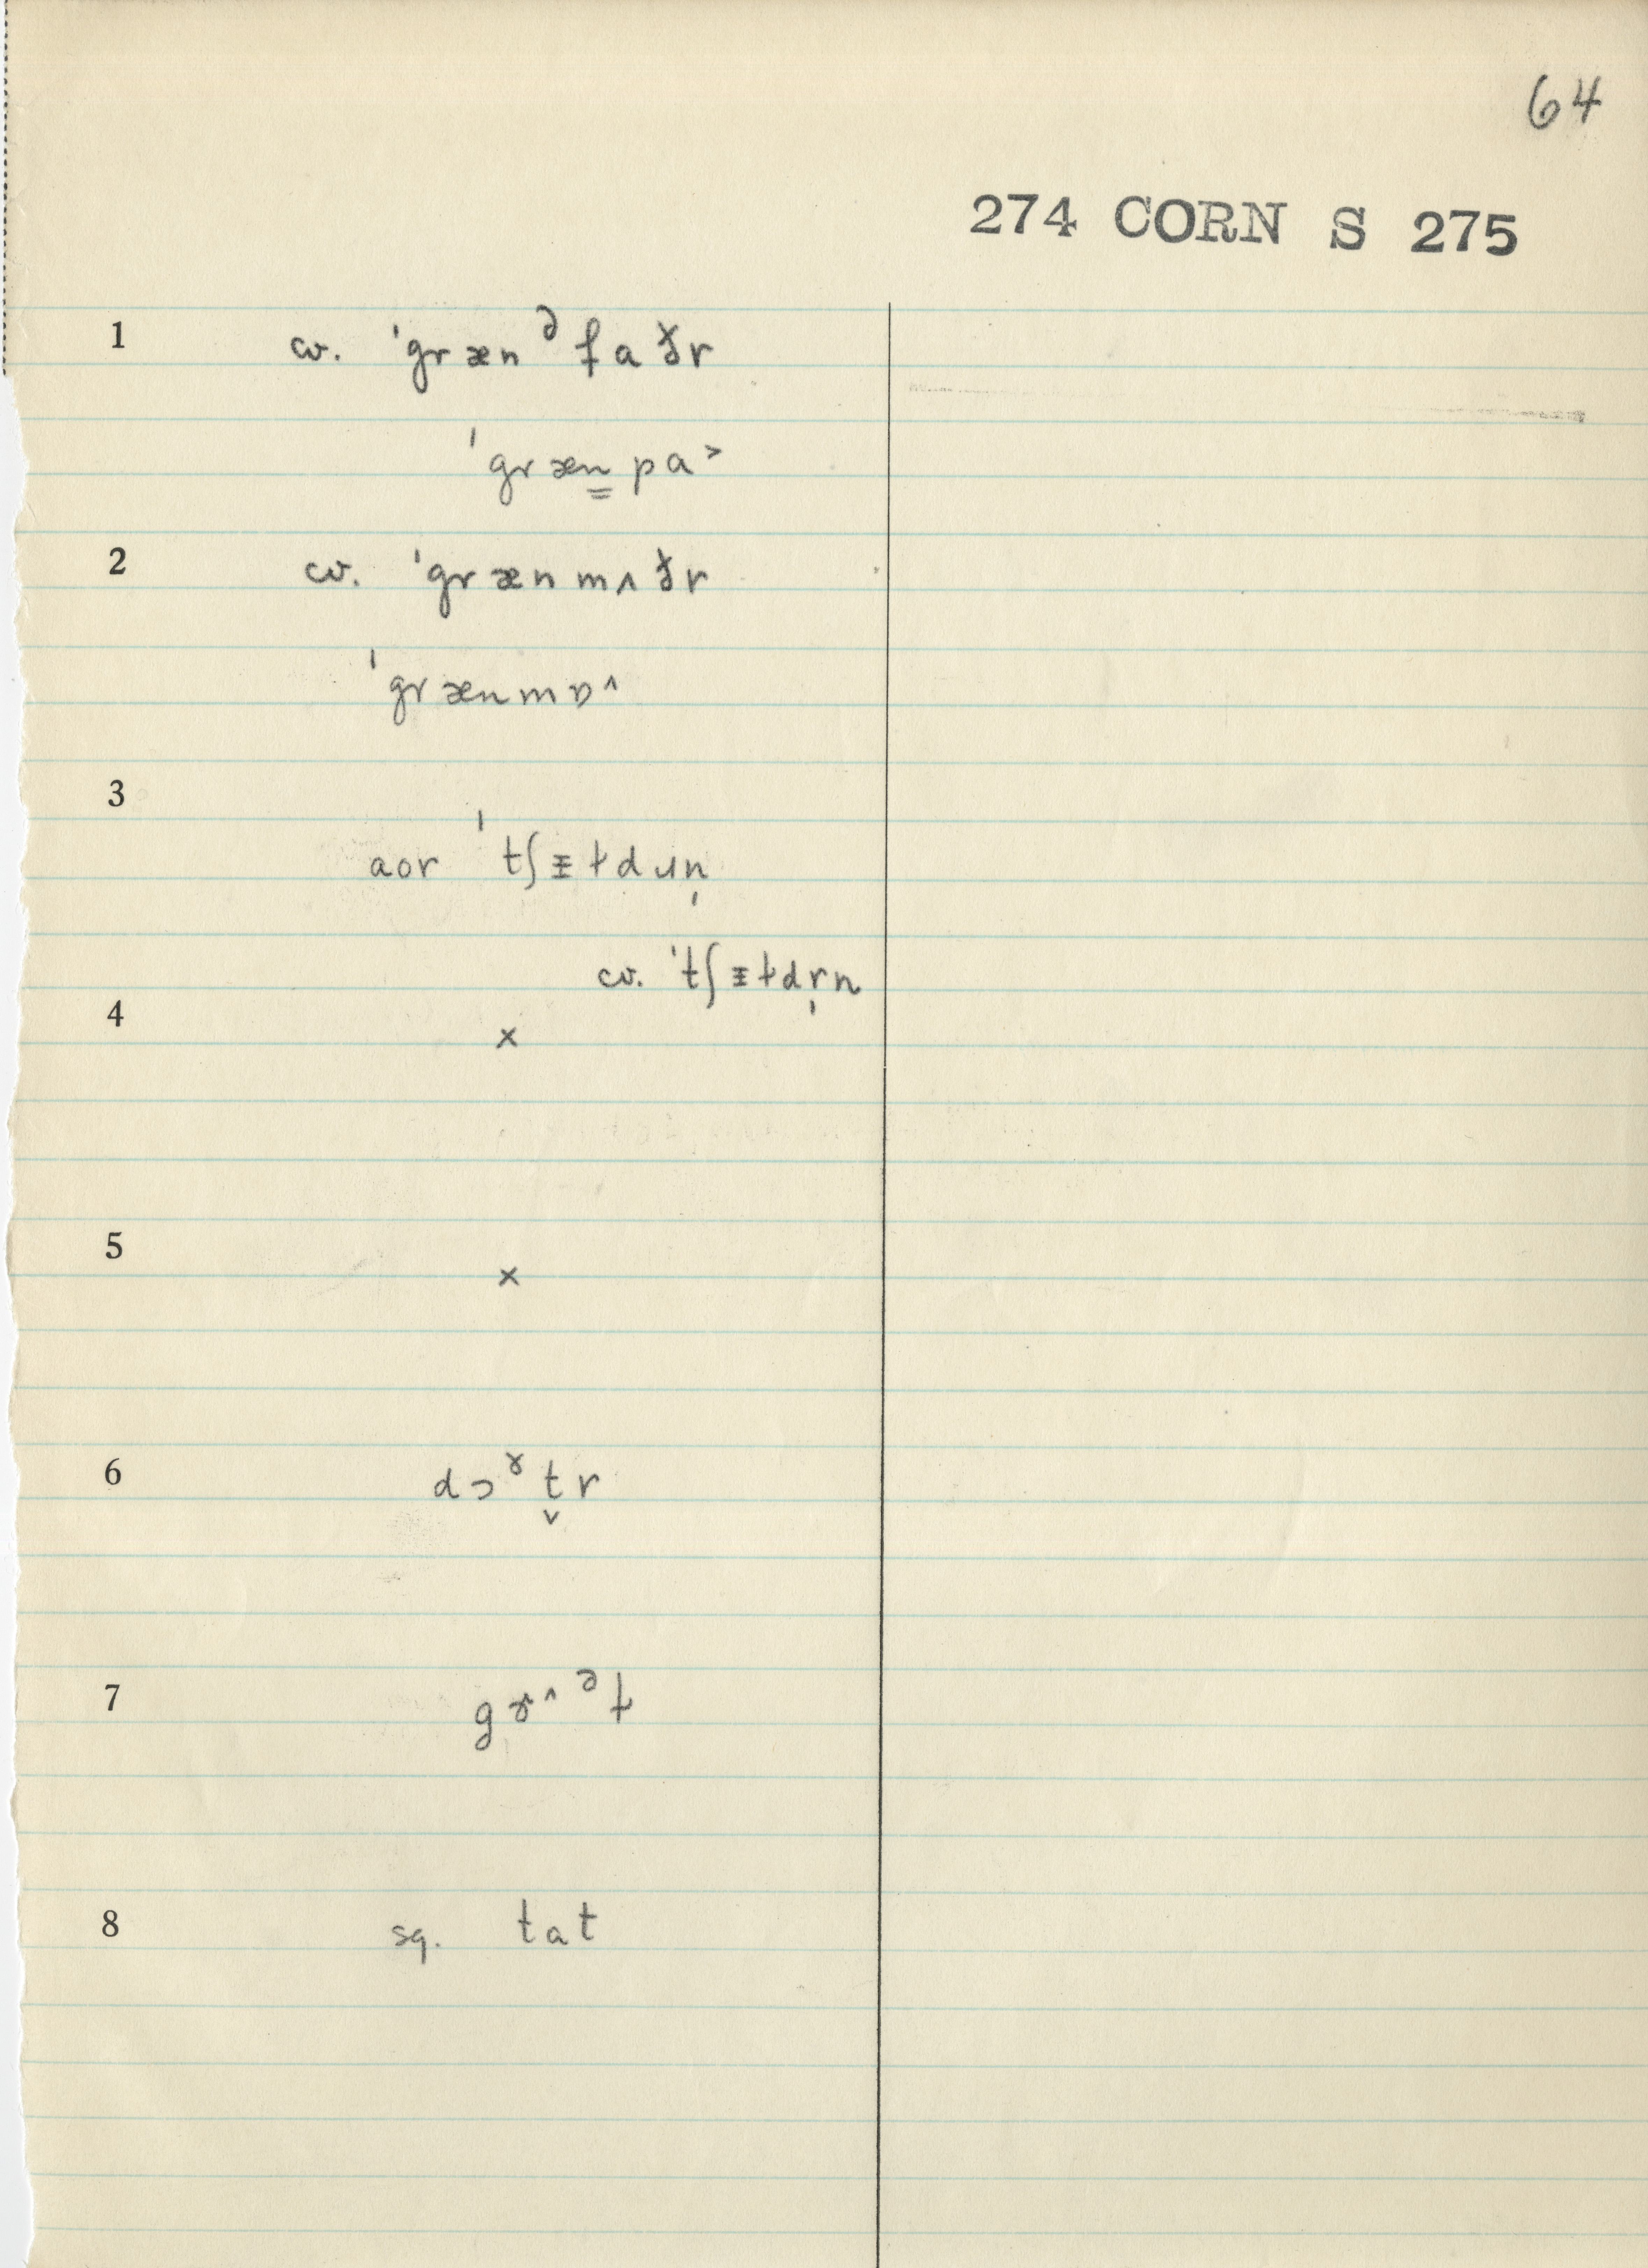 64
274 CORN S 275
1 cv. ˈgrænᵊfaðr
ˈgræn̳pa˃
2 cv. ˈgrænmʌðr
ˈgrænmɒ˄
3
aor ˈtʃᵻɫdɹn̩
cv. ˈtʃᵻɫdr̩n
4 ×
5 ×
6 dɔˠt̬r
7 gɤ˄ᵊɫ
8 sq. tat